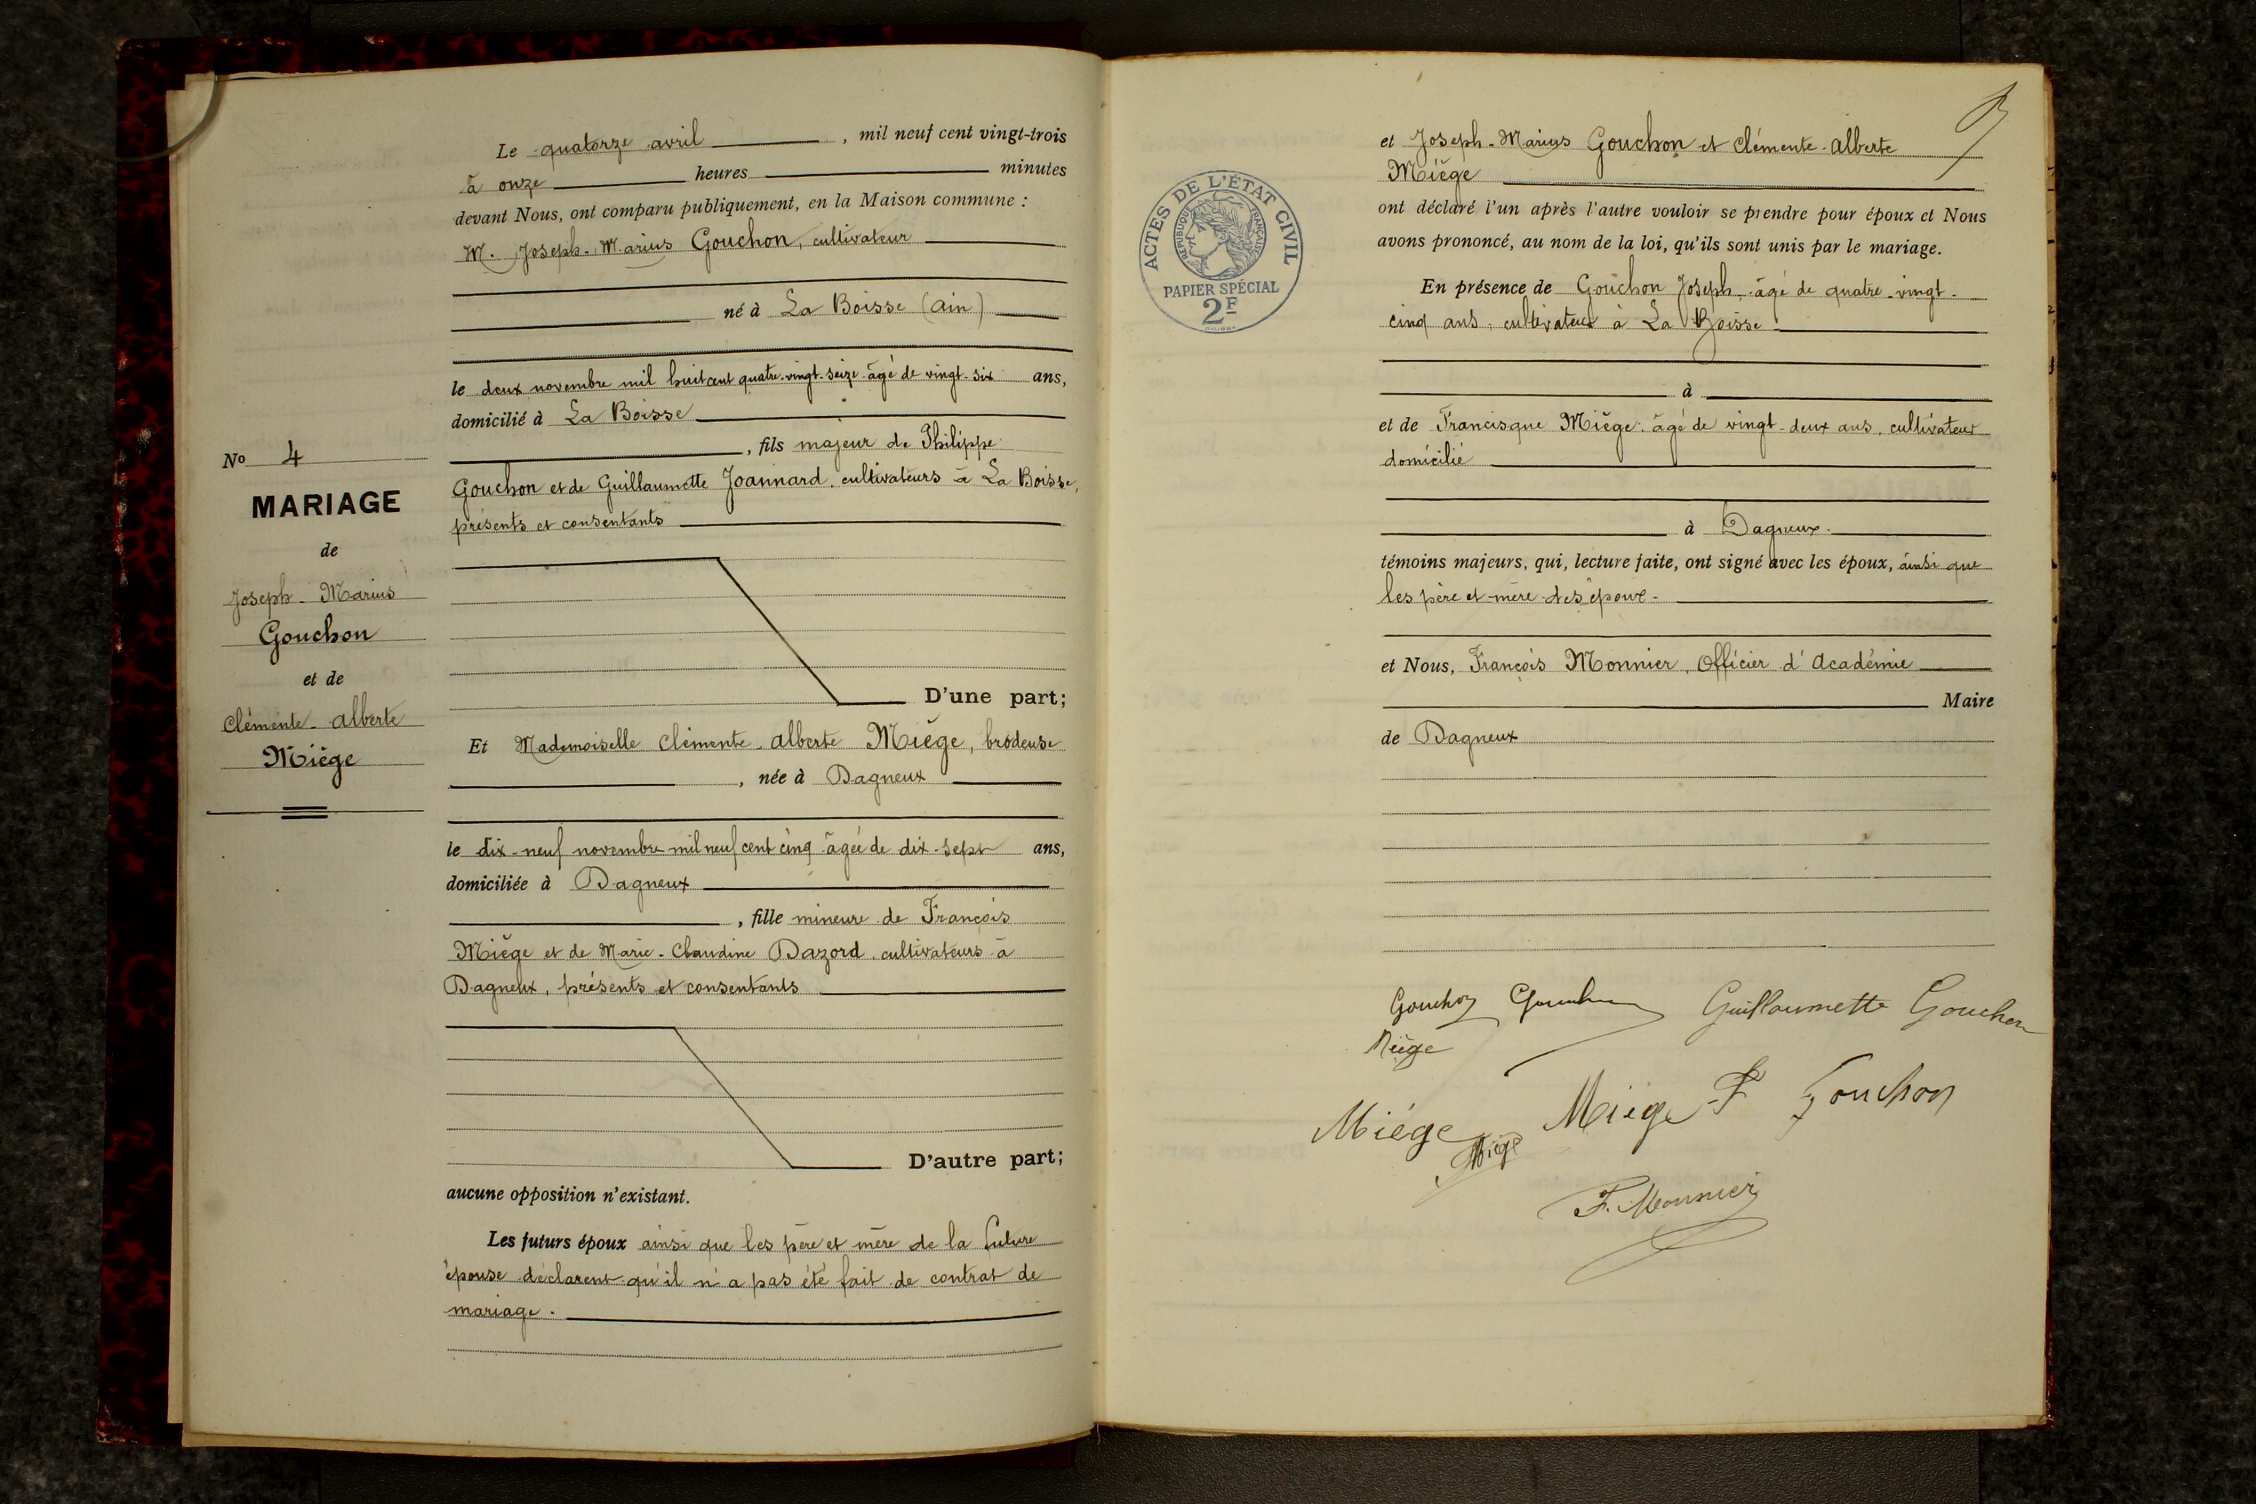 Le quatorze avril, mil neuf cent vingt-trois
à onze heures minutes
devant Nous, ont comparu publiquement, en la Maison commune :
M. Joseph-Marius Gouchon, cultivateur
né à La Boisse (Ain)
le deux novembre mil huit cent quatre-vingt-seize âgé de vingt-six ans,
domicilié à La Boisse
, fils majeur de Philippe
Gouchon et de Guillaumette Joannard, cultivateurs à La Boisse,
présents et consentants
D'une part;
Et Mademoiselle Clémente-Alberte Miège, brodeuse
, née à Dagneux
le dix-neuf novembre mil neuf cent cinq âgée de dix-sept ans,
domiciliée à Dagneux
, fille mineure de François
Miège et de Marie-Claudine Dazord, cultivateurs à
Dagneux, présents et consentants
D'autre part;
aucune opposition n'existant.
Les futurs époux ainsi que les père et mère de la future
épouse déclarent qu'il n'a pas été fait de contrat de
mariage.
No 4
MARIAGE
de
Joseph-Marius
Gouchon
et de
Clémente-Alberte
Miège
ACTES DE L'ÉTAT CIVIL
RÉPUBLIQUE FRANÇAISE
PAPIER SPÉCIAL
2F
et Joseph-Marius Gouchon et Clémente-Alberte
Miège
ont déclaré l'un après l'autre vouloir se prendre pour époux et Nous
avons prononcé, au nom de la loi, qu'ils sont unis par le mariage.
En présence de Gouchon Joseph, âgé de quatre-vingt-
cinq ans, cultivateur à La Boisse
à
et de Francisque Miège, âgé de vingt-deux ans, cultivateur
domicilié
à Dagneux.
témoins majeurs, qui, lecture faite, ont signé avec les époux, ainsi que
les père et mère des époux.
et Nous, François Monnier, Officier d'Académie
Maire
de Dagneux
Gouchon Gouchon Guillaumette Gouchon
Miège
Miège Miège F Gouchon
Miège
F. Monnier